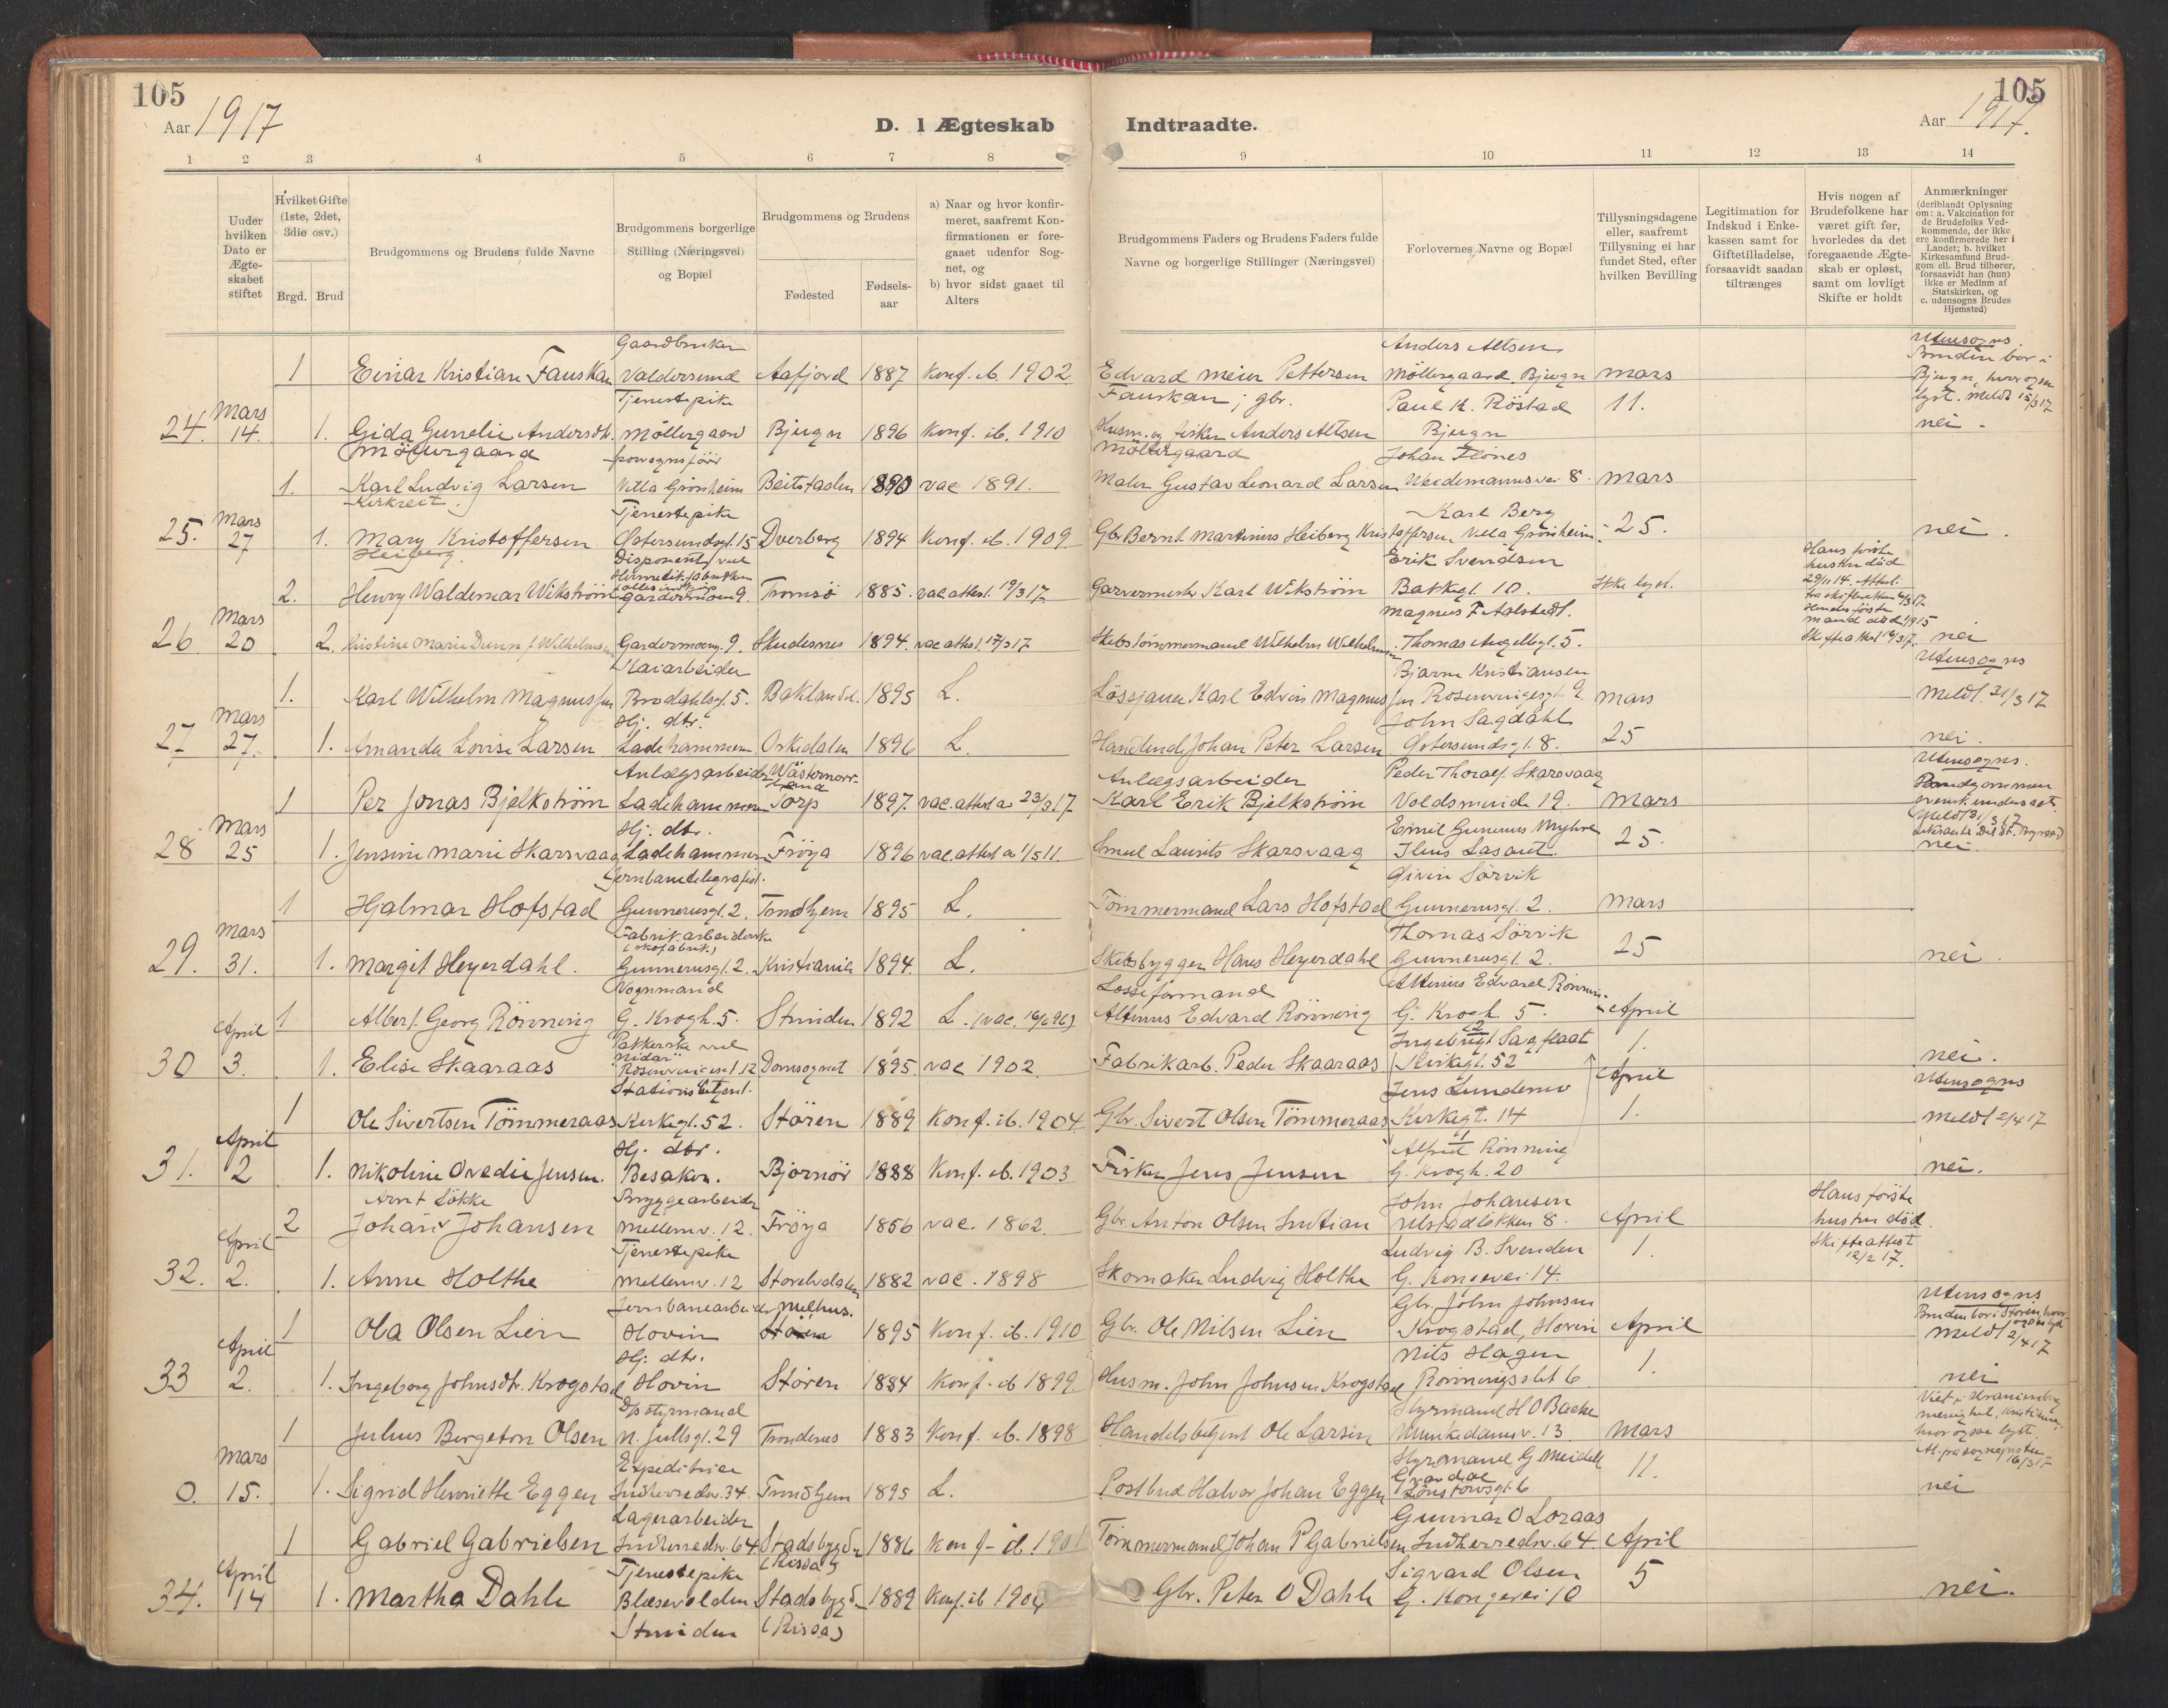 105
105
Aar 1917
D. 1 Ægteskab Indtraadte.
Aar 1917.
1 2 3 4 5 6 7 8 9 10 11 12 13 14
Uuder hvilken Dato er Ægte-skabet stiftet
Hvilket Gifte (1ste, 2det, 3die osv.)
Brgd. Brud
Brudgommens og Brudens fulde Navne
Brudgommens borgerlige Stilling (Næringsvei) og Bopæl
Brudgommens og Brudens
Fødested
Fødsels-aar
a) Naar og hvor konfir-meret, saafremt Kon-firmationen er fore-gaaet udenfor Sog-net, og
b) hvor sidst gaaet til Alters
Brudgommens Faders og Brudens Faders fulde Navne og borgerlige Stillinger (Næringsvei)
Forlovernes Navne og Bopæl
Tillysningsdagene eller, saafremt Tillysning ei har fundet Sted, efter hvilken Bevilling
Legitimation for Indskud i Enke-kassen samt for Giftetilladelse, forsaavidt saadan tiltrænges
Hvis nogen af Brudefolkene har været gift før, hvorledes da det foregaaende Ægte-skab er opløst, samt om lovligt Skifte er holdt
Anmærkninger (deriblandt Oplysning om: a. Vakcination for de Brudefolks Ved-kommende, der ikke ere konfirmerede her i Landet; b. hvilket Kirkesamfund Brud-gom ell. Brud tilhører, forsaavidt han (hun) ikke er Medlnm af Statskirken, og c. udensogns Brudes Hjemsted)
Gaardbruker
1 Einar Kristian Fauskan Valdersund Aafjord 1887 Konf. ib. 1902 Edvard Meier Pettersen Fauskan, gbr. Anders Altsen Möllergaard, Bjugn Mars Utensogns. Bruden bor i Bjugn, hvor ogsaa lyst. Meldt 15/3 17
Tjenestepike
24. Mars 14. 1. Gida Gunelie Andersdtr. Möllergaard Möllergaard Bjugn 1896 Konf. ib. 1910 Husm. og fisker Anders Altsen Möllergaard Paul K. Röstad Bjugn 11. nei.
1. Karl Ludvig Larsen Kirkreit. Villa Grönheim Beitstaden 1890 vac 1891. Maler Gustav Leonard Larsen Johan Flones Weidemannsvei 8. Mars
Tjenestepike
25. Mars 27 1. Mary Kristoffersen Heiberg. Østersundsgt. 15 Dverberg 1894 Konf. ib. 1909 Gbr. Bernt Martinius Heiberg Kristoffersen Karl Berg Villa Grönheim. 25. nei.
Disponent ved
2. Henry Waldemar Wikström Gardermoen 9. Tromsö 1885. vac. attest. 19/3 17 Garvermester Karl Wikström Erik Svendsen Bakkegt. 10. Ikke lyst. Hans første hustru död 29/11 14. Attest.
26. Mars 20 2. Kristine Marie Dunn f. Wilhelmsen Gardermoeng. 9. Skudesnes 1894. vac. attest. 17/3 17 Skibstömmermand Wilhelm Wilhelmsen Magnus F Aalstedt. Thomas Angellsgt. 5. Hendes første mand död 1915 Skifteattest 16/3 17. nei
Kaiarbeider
1. Karl Wilhelm Magnussen Brodahlsgt. 5. Baklandet. 1895 L. Lössejaner Karl Edvin Magnussen Bjarne Kristiansen Rosenvingesgt. 9. Mars Utensogns Meldt. 31/3 17
Hj. dtr.
27 Mars 27. 1. Amanda Lovise Larsen Ladehammeren Orkedalen 1896 L. Handlende Johan Peter Larsen John Sagdahl Østersundsgt. 8. 25 nei.
Anlægsarbeider
1 Per Jonas Bjelkström Ladehammeren Wästernorrland Torp 1897. vac. attest a 23/3 17. Anlægsarbeider Karl Erik Bjelkström Peder Thoralf Skarsvaag Voldsminde 19. Mars Utensogns. Brudgommen svensk undersaat.
Hj. dtr.
28 Mars 25 1. Jensine Marie Skarsvaag Ladehammeren Fröya 1896 vac. attest a 1/5 11. Smed Laurits Skarsvaag Emil Gunnus Myhre Ilens Lasaret. 25. nei.
Jernbanetelegrafist.
1 Hjalmar Hofstad Gunnerusgt. 2. Trondhjem 1895 L. Tömmermand Lars Hofstad Sörvik Gunnerusgt. 2. Mars
Fabrikarbeiderske (skofabrik)
29. Mars 31. 1. Margit Heyerdahl. Gunnerusgt. 2. Kristiania 1894. L. Skibsbygger Hans Heyerdahl Thomas Sörvik Gunnerusgt. 2. 25 nei.
Vognmand
1 Albert Georg Rönning G. Krogh. 5. Strinden 1892 L. (vac. 16/6 96) Losseformand Altinius Edvard Rönning Altinius Edvard Rönning G. Krogh 5. April
Pakkerske ved "Nidar"
30 April 3. 1. Elise Skaaraas Rosenvingesgt. 12 Domsognet 1895. vac 1902. Fabrikarb. Peder Skaaraas Ingebrigt Sagflaat Kirkegt. 52 1. nei.
Stationsbetjent.
1 Ole Sivertsen Tömmeraas Kirkegt. 52. Stören 1889 Konf. ib. 1904 Gbr. Sivert Olsen Tömmeraas Jens Lundemo Kirkegt. 14 April 1. Utensogns Meldt 2/4 17
Hj. dtr.
31. April 2 1. Nikoline Ovedie Jensen. Besaker. Björnör 1888 Konf. ib. 1903 Fisker Jens Jensen Alfred Rönning G. Krogh. 20 nei.
Arnt Lökke Bryggearbeider
2 Johan Johansen Mellemv. 12. Fröya 1856 vac. 1862. Gbr. Anton Olsen John Johansen Ulstadløkken 8. April Hans første hustru död. Skifteattest 12/2 17.
Tjenestepike
32. April 2. 1. Anne Holthe Mellemv. 12 Storelvdalen 1882 vac. 1898 Skomaker Ludvig Holthe Ludvig B. Svenden G. Kongevei 14. 1.
Jernbanearbeider
1 Ola Olsen Lien Hovin Melhus. Stören 1895 Konf. ib. 1910 Gbr. Ole Nilsen Lien Gbr. John Johnsen Krogstad, Hovin April Utensogns Bruden bor i Stören, hvor ogsaa lyst Meldt 2/4 17
Hj. dtr.
33 April 2. 1. Ingeborg Johnsdtr. Krogstad Hovin Stören 1884 Konf. ib 1899 Husm. John Johnsen Krogstad Nils Hagen Rönningsslet 6 1. nei
D/sstyrmand
1 Julius Bergeton Olsen N. Juelsgt. 29 Trondenes 1883 Konf. ib. 1898 Handelsbetjent Ole Larsen Styrmand H O Backe Munkedamsv. 13. Mars Viet i Uranienborg menighet, Kristiania, hvor ogsaa lyst. 16/3 17
Expeditrice
0. Mars 15. 1. Sigrid Henriette Eggen Indherredsv. 34. Trondhjem 1895 L. Postbud Halvor Johan Eggen Styrmand G Meidell 11. nei
Lagerarbeider
1 Gabriel Gabrielsen Indherredsv. 64 Stadsbygden (Rissa) 1886 Konf. ib. 1901 Tömmermand Johan P Gabrielsen Gunnar O Loraas Indherredsv. 64 April
Tjenestepike
34. April 14 1. Martha Dahle Blæsevolden Strinden Stadsbygd (Rissa) 1889 Konf. ib 1904 Gbr. Peter O Dahle Sigvard Olsen G. Kongevei 10 5 nei.